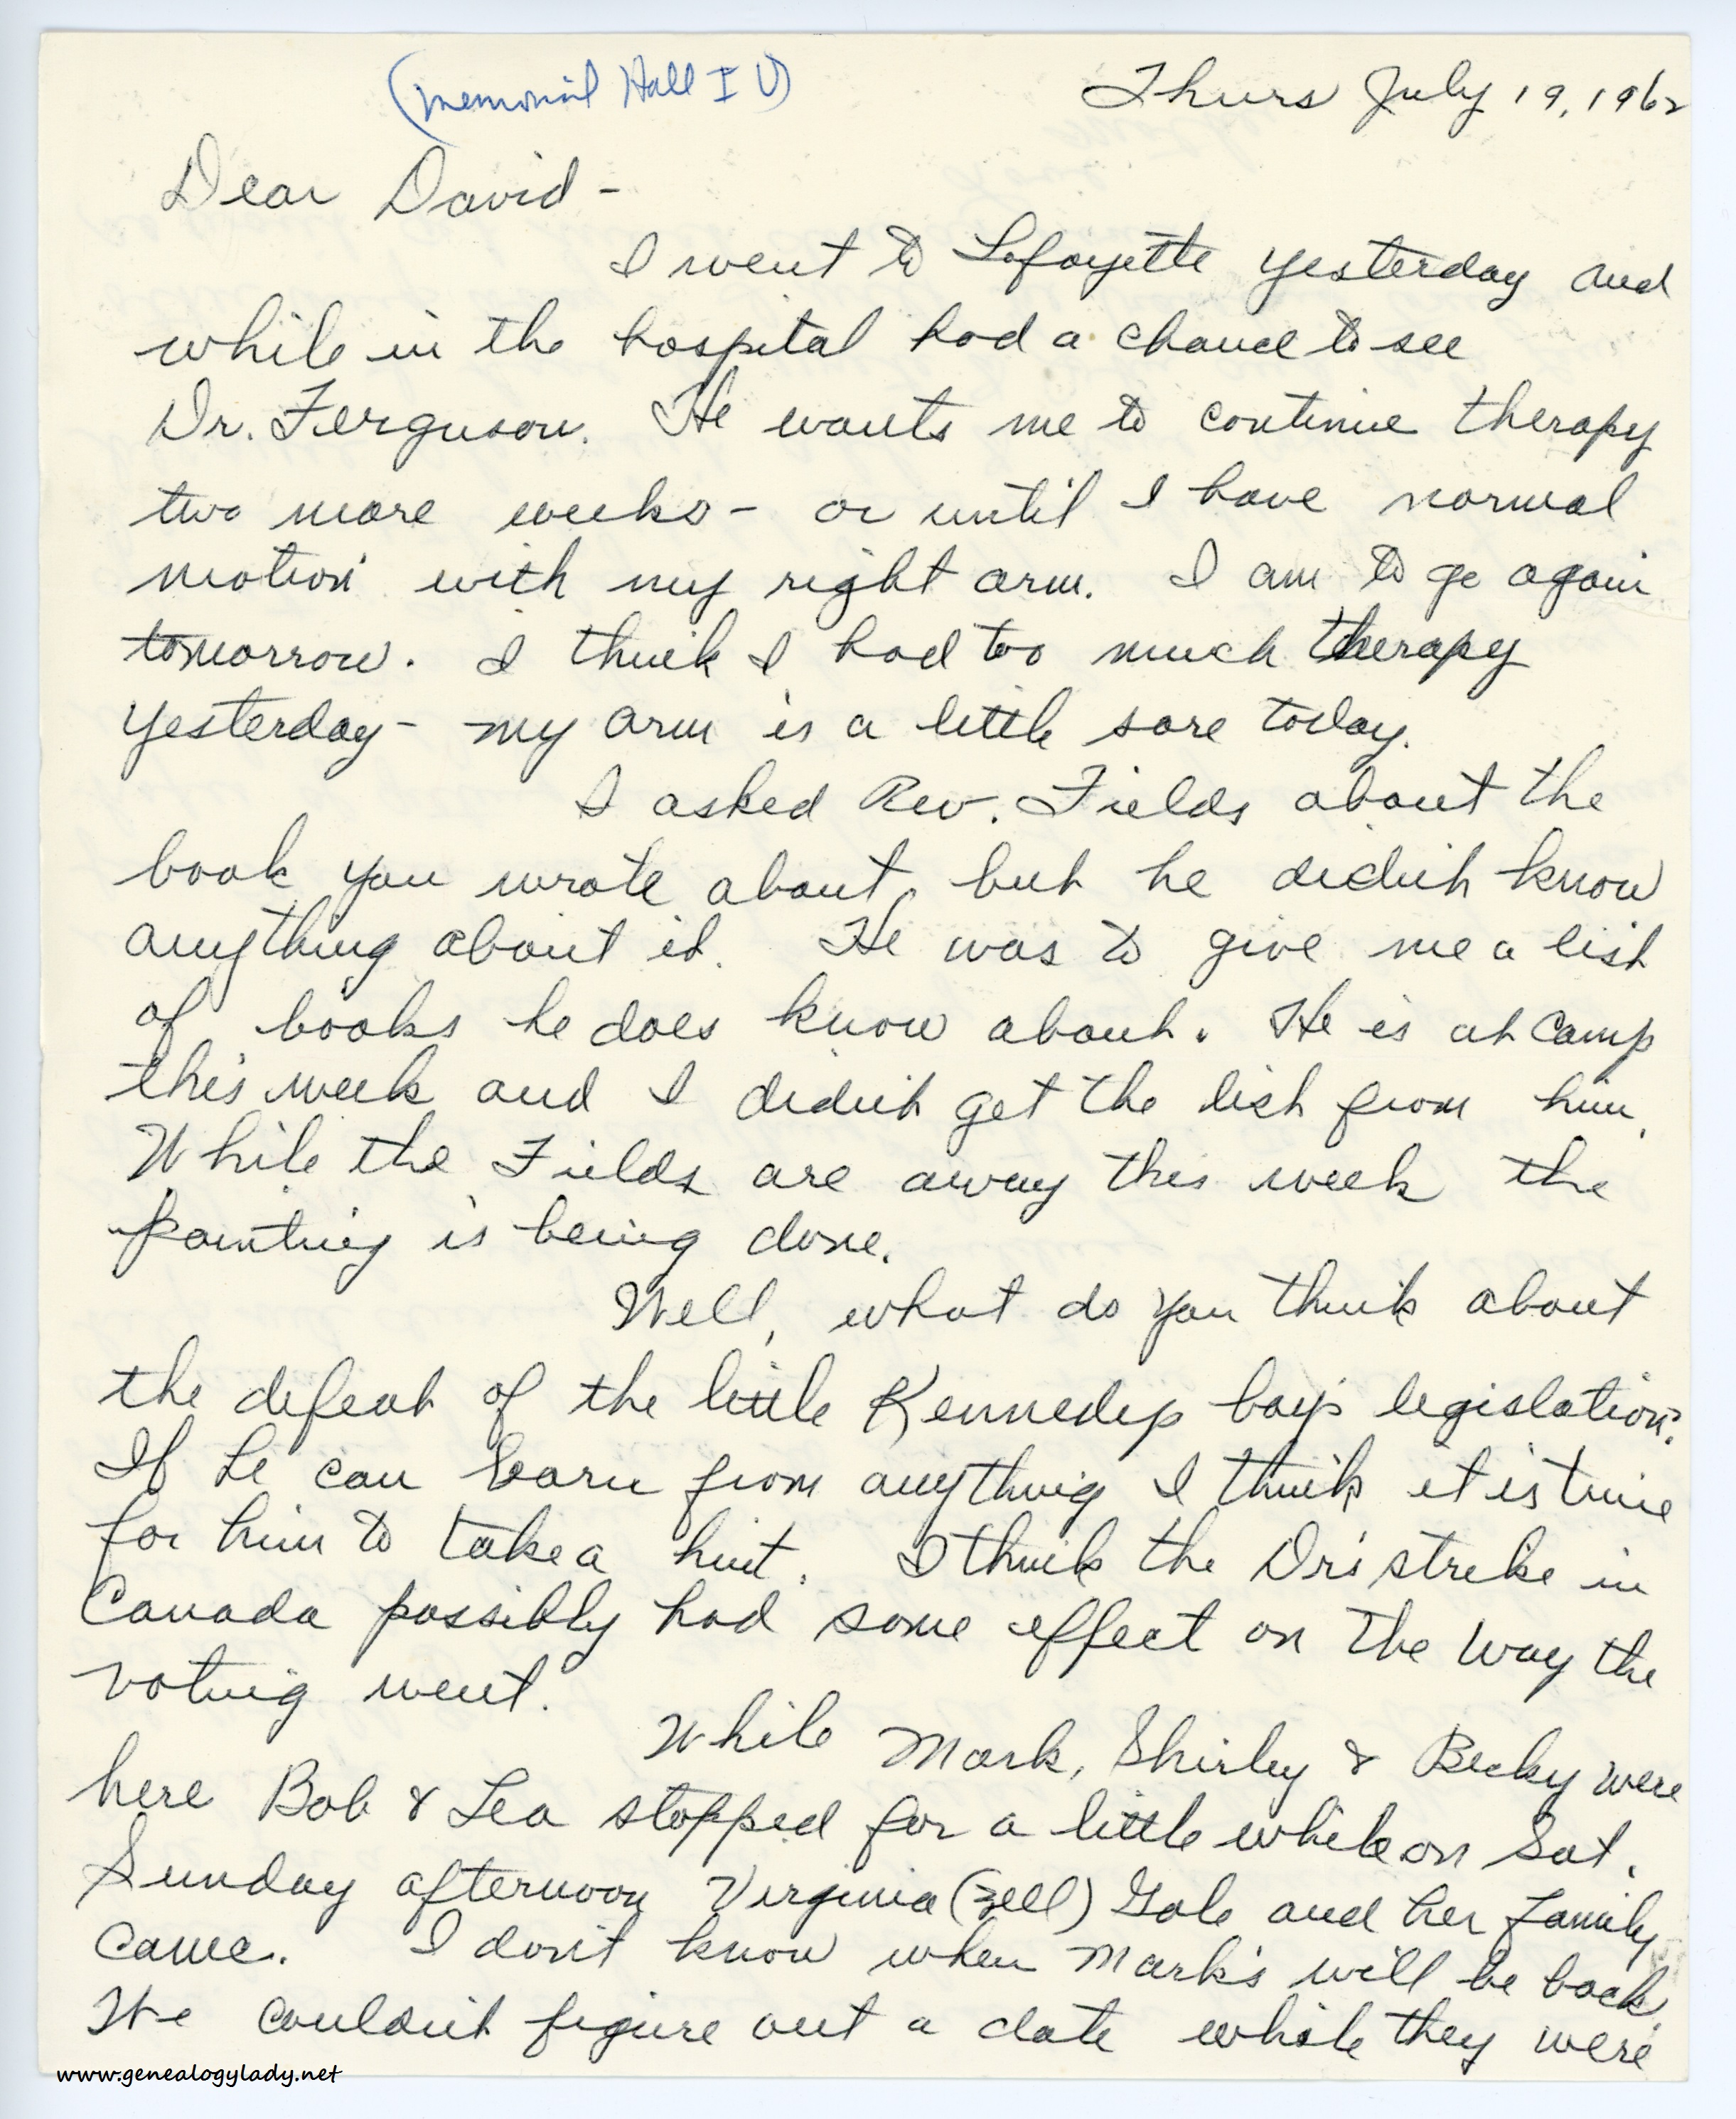 (Memorial Hall I U)
Thurs July 19, 1962
Dear David -
I went to Lafayette yesterday and
while in the hospital had a chance to see
Dr. Ferguson. He wants me to continue therapy
two more weeks - or until I have normal
motion with my right arm. I am to go again
tomorrow. I think I had too much therapy
yesterday - my arm is a little sore today.
I asked Rev. Fields about the
book you wrote about, but he didn't know
anything about it. He was to give me a list
of books he does know about. He is at camp
this week and I didn't get the list from him.
While the Fields are away this week the
painting is being done.
Well, what do you think about
the defeat of the little Kennedy boy's legislation?
If he can learn from anything I think it is time
for him to take a hint. I think the Drs strike in
Canada possibly had some effect on the way the
voting went.
While Mark, Shirley & Becky were
here Bob & Lea stopped for a little while on Sat.
Sunday afternoon Virginia (Zell) Gale and her family
came. I don't know when Mark's will be back.
We couldn't figure out a date while they were
www.genealogylady.net